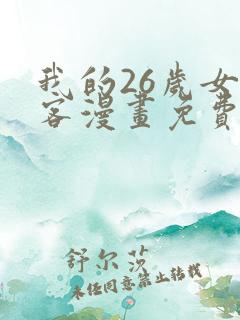 我的26歲女
客漫畫免費
舒尔莎
未经同意禁止转载